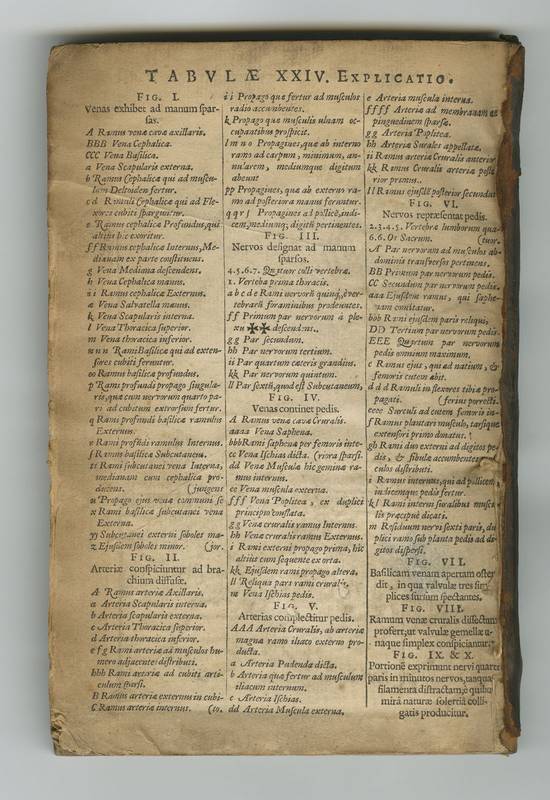 TABVLÆ XXIV. EXPLICATIO.
FIG. I.
Venas exhibet ad manum spar-
sas.
A Ramus venæ cavæ axillaris.
BBB Vena Cephalica.
CCC Vena Basilica.
a Vena Scapularis externa.
b Ramus Cephalicæ qui ad muscu-
lum Deltoiden fertur.
c d Ramuli Cephalicæ qui ad Fle-
xores cubiti sparguntur.
e Ramus cephalicæ Profundus, qui
altius hic exoritur.
ff Ramus cephalicæ Internus, Me-
dianam ex parte constituens.
g Vena Mediana descendens.
h Vena Cephalica manus.
i i Ramus cephalicæ Externus.
a Vena Salvatella manus.
k Vena Scapularis interna.
l Vena Thoracica superior.
m Vena thoracica inferior.
n n n Rami Basilicæ qui ad exten-
sores cubiti feruntur.
oo Ramus basilicæ profundus.
p Rami profundi propago singula-
ris, quæ cum nervorum quarto pa-
ri ad cubitum extrorsum fertur.
q Rami profundi basilicæ ramulus
Externus.
r Rami profundi ramulus Internus.
s Ramus basilicæ Subcutaneus.
tt Rami subcutanei vena Interna,
medianam cum cephalica pro-
ducens. (jungens
u Propago ejus venæ communi se
x Rami basilicæ subcutanei vena
Externa.
yy Subcutanei externi soboles ma-
z Ejusdem soboles minor. (jor.
FIG. II.
Arteriæ conspiciuntur ad bra-
chium diffusæ.
A Ramus arteriæ Axillaris.
a Arteria Scapularis interna.
b Arteria scapularis externa.
c Arteria Thoracica superior.
d Arteria thoracica inferior.
e f g Rami arteriæ ad musculos hu-
mero adjacentes distributi.
hhh Rami arteriæ ad cubiti arti-
culum sparsi.
B Ramus arteriæ externus in cubi-
C Ramus arteriæ internus. (to.
i i Propago quæ fertur ad musculos
radio accumbentes.
k Propago quæ musculis ulnam oc-
cupantibus prospicit.
l m n o Propagines, quæ ab interno
ramo ad carpum, minimum, an-
nularem, mediumque digitum
abeunt
pp Propagines, quæ ab externo ra-
mo ad posteriora manus feruntur.
q q r s Propagines ad pollicē, indi-
cem, mediumq; digitū pertinentes.
FIG. III.
Nervos designat ad manum
sparsos.
4.5.6.7. Quatuor colli vertebræ.
1. Vertebra prima thoracis.
a b c d e Rami nervorū quinq, è ver-
tebrarū foraminibus prodeuntes.
ff Primum par nervorum à ple-
xu ✠✠ descendens.
g g Par secundum.
hh Par nervorum tertium.
ii Par quartum cæteris grandius.
kk Par nervorum quintum.
ll Par sextū, quod est Subcutaneum,
FIG. IV.
Venas continet pedis.
A Ramus venæ cavæ Cruralis.
aaaa Vena Saphena.
bbb Rami saphenæ per femoris inte-
cc Vena Ischias dicta. (riora sparsi.
dd Venæ Musculæ hic geminæ ra-
mus internus.
ee Vena muscula externa.
fff Vena Poplitea, ex duplici
principio conflata.
g g Venæ cruralis ramus Internus.
hh Venæ cruralis ramus Externus.
i Rami externi propago prima, hic
altius cum sequente exorta.
kk Ejusdem rami propago altera.
ll Reliqua pars rami cruralis.
m Vena Ischias pedis.
FIG. V.
Arterias complectitur pedis.
AAA Arteria Cruralis, ab arteriæ
magnæ ramo iliaco externo pro-
ducta.
a Arteria Pudenda dicta.
b Arteria quæ fertur ad musculum
iliacum internum.
c Arteria Ischias.
dd Arteria Muscula externa.
e Arteria muscula interna.
ffff Arteriæ ad membranam ac
pinguedinem sparsæ.
gg Arteria Poplitea.
hh Arteriæ Surales appellatæ.
ii Ramus arteriæ Cruralis anterior
kk Ramus Cruralis arteriæ poste-
rior primus.
ll Ramus ejusdē posterior secundus
FIG. VI.
Nervos repræsentat pedis.
2.3.4.5. Vertebræ lumborum qua-
6.6. Os Sacrum. (tuor.
A Par nervorum ad musculos ab-
dominis transversos pertinens.
BB Primum par nervorum pedis.
CC Secundum par nervorum pedis.
aaa Ejusdem ramus, qui saphe-
nam comitatur.
bbb Rami ejusdem paris reliqui,
DD Tertium par nervorum pedis.
EEE Quartum par nervorum
pedis omnium maximum.
c Ramus ejus, qui ad natium, &
femoris cutem abit.
d d d Ramuli in flexores tibiæ pro-
pagati. (ferius porrecti.
eeee Surculi ad cutem femoris in-
f Ramus plantari musculo, tarsique
extensori primo donatus.
gh Rami duo externi ad digitos pe-
dis, & fibulæ accumbentes mus-
culos distributi.
i Ramus internus, qui ad pollicem,
indicemque pedis fertur.
k l Rami interni suralibus muscu-
lis præcipuè dicati.
m Residuum nervi sexti paris, du-
plici ramo sub planta pedis ad di-
gitos dispersi.
FIG. VII.
Basilicam venam apertam osten-
dit, in qua valvulæ tres sim-
plices sursum spectantes.
FIG. VIII.
Ramum venæ cruralis dissectum
profert, ut valvulæ gemellæ u-
naque simplex conspiciantur.
FIG. IX. & X.
Portionē exprimunt nervi quarti
paris in minutos nervos, tanquā
filamenta distractam, è quibus
mirâ naturæ solertiâ colli-
gatis producitur.